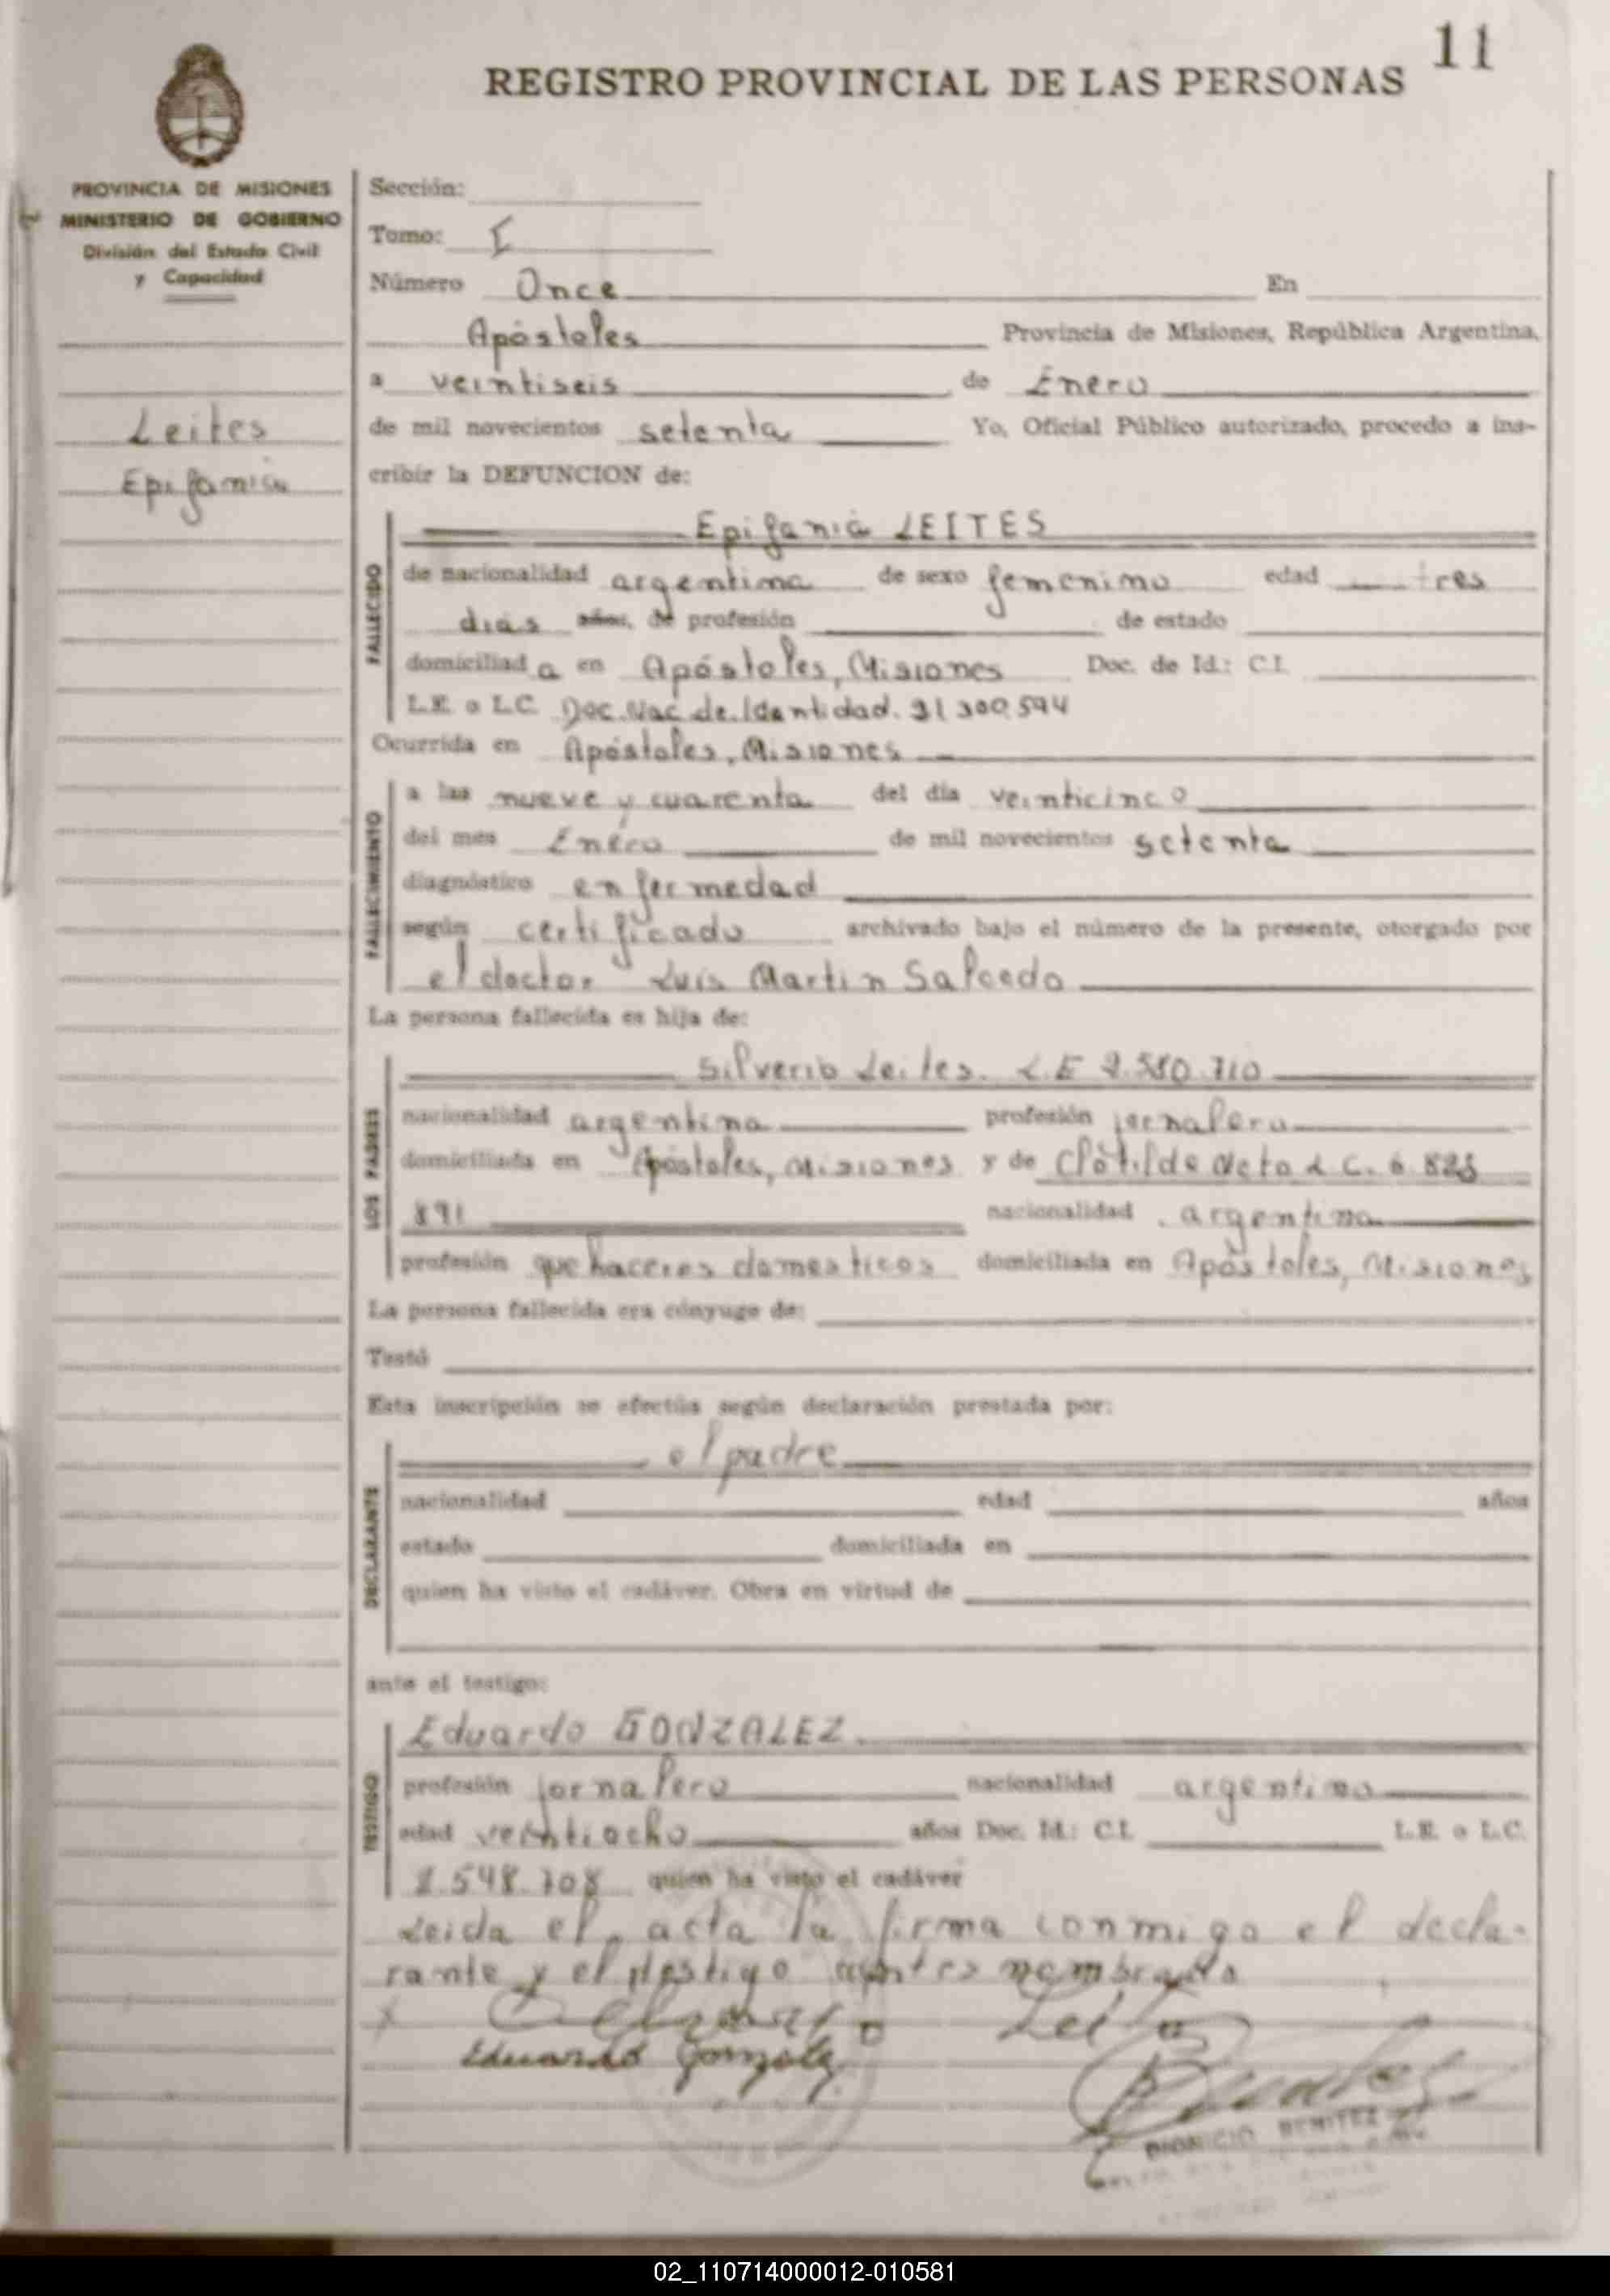 11
REGISTRO PROVINCIAL DE LAS PERSONAS
PROVINCIA DE MISIONES
MINISTERIO DE GOBIERNO
División del Estado Civil
y Capacidad
Leites
Epifania
Sección:
Tomo: I
Número Once En
Apóstoles Provincia de Misiones, República Argentina,
a veintiseis de Enero
de mil novecientos setenta Yo, Oficial Público autorizado, procedo a ins-
cribir la DEFUNCION de:
FALLECIDO
Epifania LEITES
de nacionalidad argentina de sexo femenino edad tres
dias años, de profesión de estado
domiciliad a en Apóstoles, Misiones Doc. de Id.: C.I.
L.E. o L.C. Doc. Nac. de Identidad. 21 300.594
Ocurrida en Apóstoles, Misiones
FALLECIMIENTO
a las nueve y cuarenta del día veinticinco
del mes Enero de mil novecientos setenta
diagnóstico enfermedad
según certificado archivado bajo el número de la presente, otorgado por
el doctor Luis Martin Salcedo
La persona fallecida es hija de:
LOS PADRES
Silverio Leites. L.E
nacionalidad argentina profesión jornalero
domiciliada en Apóstoles, Misiones y de Clotilde Neto L.C. 6.828
891 nacionalidad argentina
profesión que haceres domesticos domiciliada en Apóstoles, Misiones
La persona fallecida era cónyuge de:
Testó
Esta inscripción se efectúa según declaración prestada por:
DECLARANTE
el padre
nacionalidad edad años
estado domiciliada en
quien ha visto el cadáver. Obra en virtud de
ante el testigo:
TESTIGO
Eduardo GONZALEZ
profesión jornalero nacionalidad argentino
edad veintiocho años Doc. Id.: C.I. L.E. o L.C.
quien ha visto el cadáver
Leida el acta la firma conmigo el decla-
rante y el testigo antes nombrado
Leites
Eduardo Gonzalez
DIONICIO BENITEZ
02_110714000012-010581